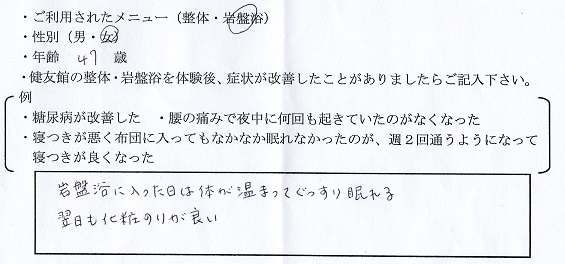 ・ご利用されたメニュー（整体・岩盤浴）
・性別（男・女）
・年齢 47 歳
・健友館の整体・岩盤浴を体験後、症状が改善したことがありましたらご記入下さい。
例
・糖尿病が改善した ・腰の痛みで夜中に何回も起きていたのがなくなった
・寝つきが悪く布団に入ってもなかなか眠れなかったのが、週２回通うようになって
寝つきが良くなった
岩盤浴に入った日は体が温まってぐっすり眠れる
翌日も化粧のりが良い